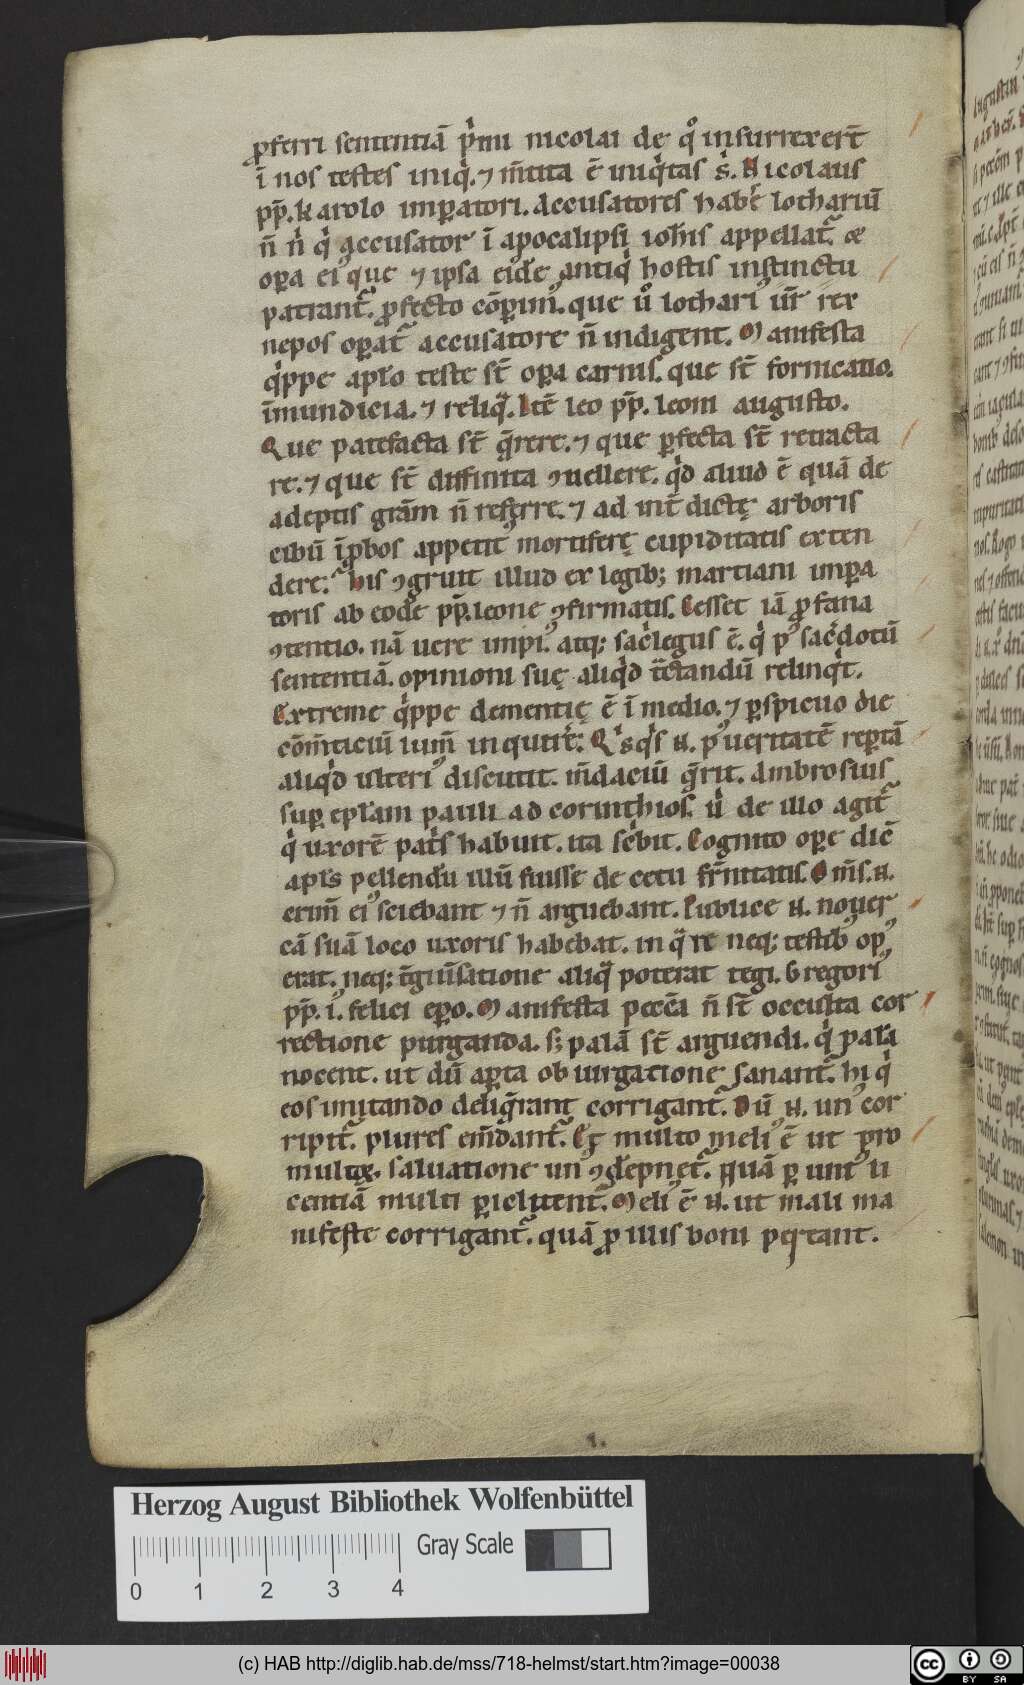 ꝓferri sententiā p̍mi nicolai de q̊ insurrexer̄t
ī nos testes iniq̍. ⁊ m̄tita ē iniq̍tas s̍. Nicolaus
pp̄. karolo imꝑatori. Accusatores hab&̍ lothariū
n̄ n̍ q̍ accusator ī apocalipsi ioh̄is appellat᷑. &
oꝑa ei᷒ que ⁊ ipsa eide antiq̍ hostis instinctu
patrant᷑. ꝓfecto cōꝑim᷒. que ů lothari᷒ ur̄ rex
nepos oꝑat᷑ accusatore n̄ indigent. Manifesta
q̍ppe apl̄o teste st̄ oꝑa carnis. que st̄ fornicatio.
īmundicia. ⁊ reliq̄. Itē leo pp̄. leoni augusto.
Que patefacta st̄ q̄rere. ⁊ que ꝑfecta st̄ retracta
re. ⁊ que st̄ diffinita ꝯuellere. q̍d aliud ē quā de
adeptis grām n̄ referre. ⁊ ad int̄dictę arboris
cibū īꝓbos appetit᷒ mortiferę cupiditatis exten
dere. his ꝯgruit illud ex legib; martiani imꝑa
toris ab eodē pp̄. leone ꝯfirmatis. Cesset iā ꝓfana
ꝯtentio. nā uere impi᷒ atq; sac̍legus ē. q̍ p᷒ sac̍dotū
sententiā. opinioni suę aliq̍d t̄ctandū relinq̍t.
Extreme q̍ppe dementię ē ī medio. ⁊ ꝑspicuo die
cōm̄ticiū lum̄ inquirere. Q̍sq̍s n̄. p᷒ ueritatē reꝑtā
aliq̍d ulteri᷒ discutit. m̄daciū q̄rit. Ambrosius
suꝑ epl̄am pauli ad corinthios. ū de illo agit᷑
q̍ uxorē pat̍s habuit. ita sc̍bit. Cognito oꝑe diē
apl̄s pellendū illū fuisse de cetu fr̄nitatis. Om̄s. n̄.
crim̄ ei᷒ sciebant ⁊ n̄ arguebant. Publice n̄. nouer
cā suā loco uxoris habebat. in q̄ re neq; testib᷒ op᷒
erat. neq; t̄giūsatione aliq̄ poterat tegi. Gregori᷒
pp̄. i᷒. felici eꝑo. Manifesta peccā n̄ st̄ occulta cor
rectione purganda. s; palā st̄ arguendi. q̍ palā
nocent. ut dū aꝑta obiurgatione sanant᷑. hi q̍
eos imitando deliq̄rant corrigant᷑. Dū n̄. un᷒ cor
ripit᷑. plures em̄dant᷑. Et multo meli᷒ ē ut pro
multoꝝ saluatione un᷒ ꝯdēpnet᷑. quā ꝑ uni᷒ li
centiā multi ꝑiclitent᷑. Meli᷒ ē n̄. ut mali ma
nifeste corrigant᷑. quā ꝓ illis boni pereant.
Herzog August Bibliothek Wolfenbüttel
Gray Scale
0 1 2 3 4
(c) HAB http://diglib.hab.de/mss/718-helmst/start.htm?image=00038
cc BY SA